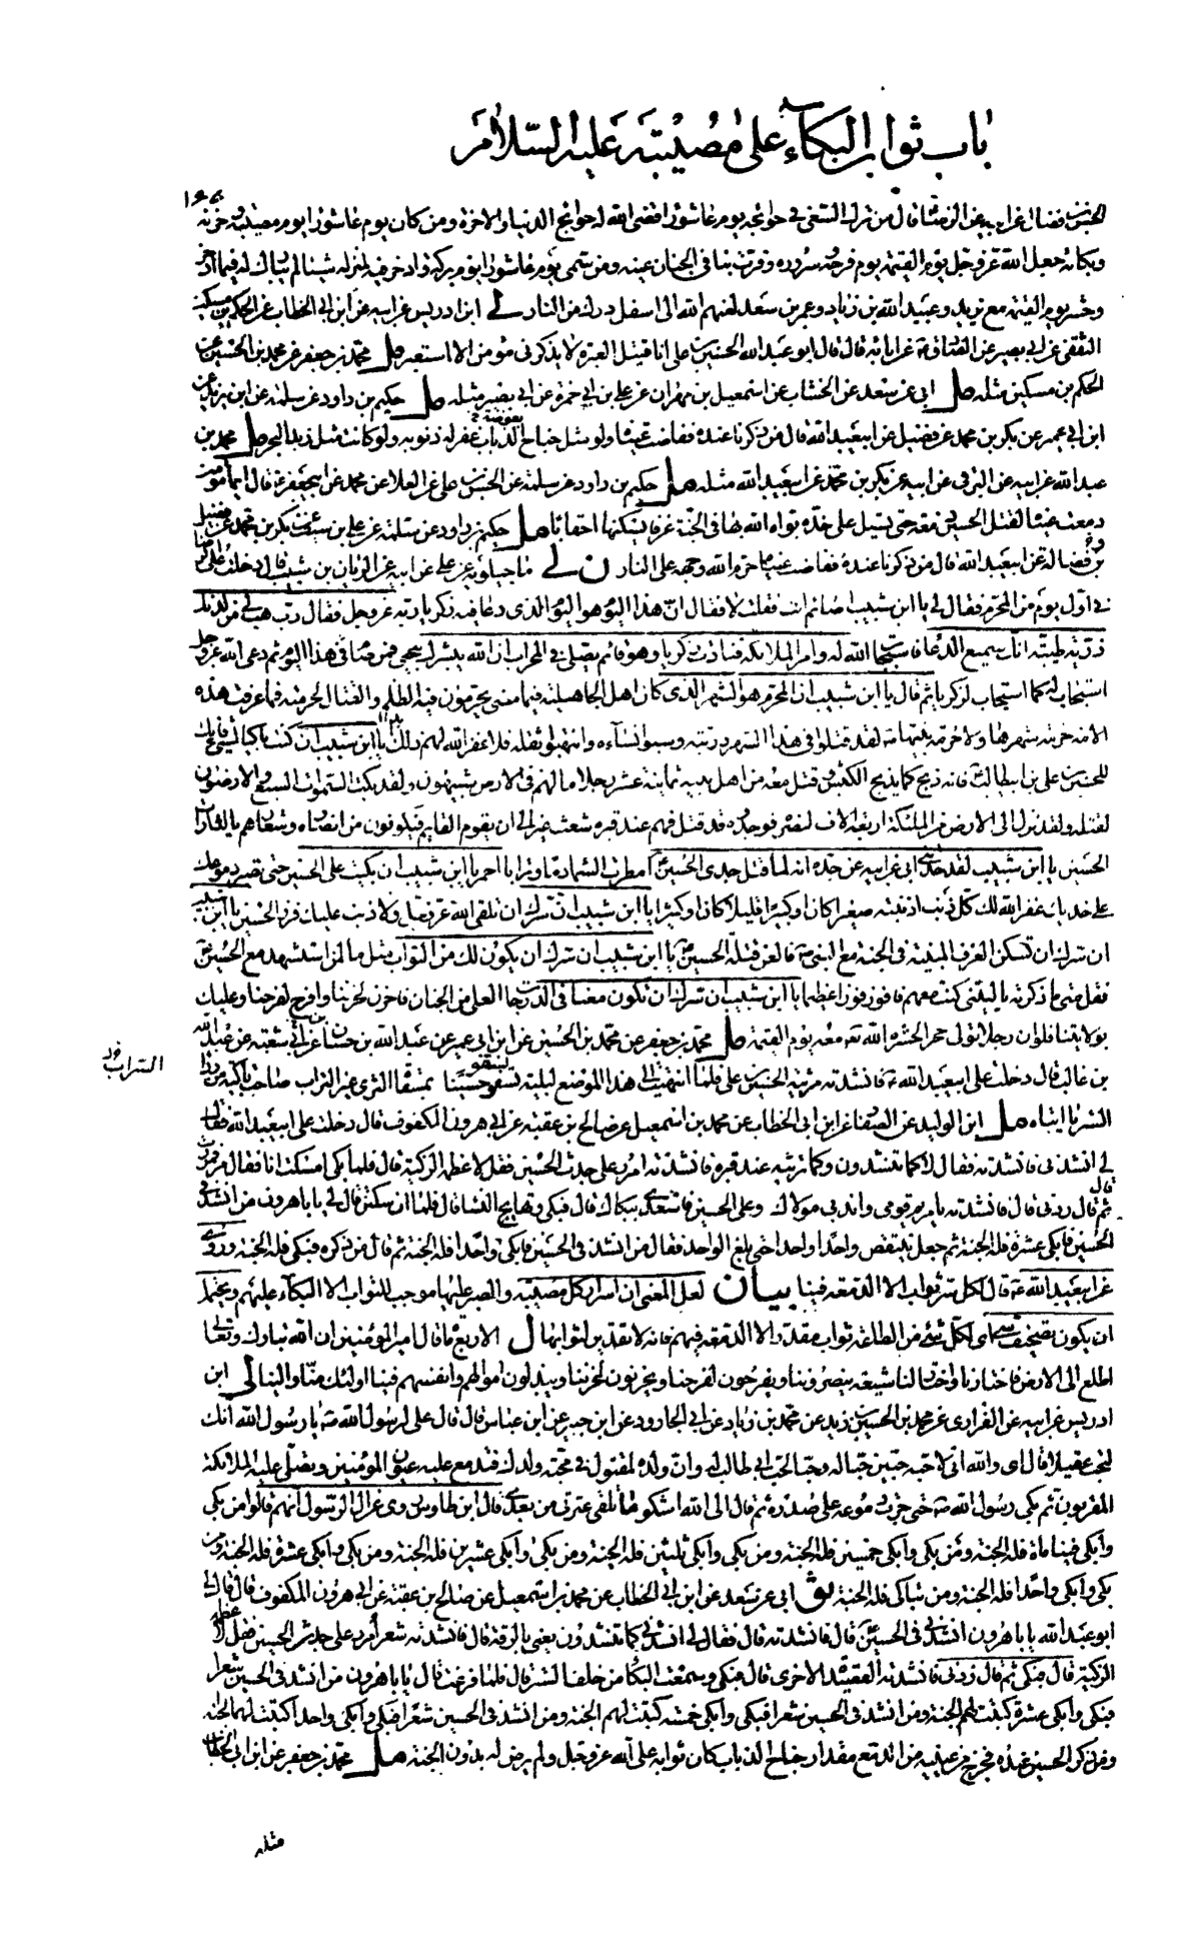 باب ثواب البكاء على مصيبته عليه السلام
الحسن بن فضال عن ابيه عن الرضا قال من ترك السعى فى حوائجه يوم عاشورا قضى الله له حوائج الدنيا والاخرة ومن كان يوم عاشورا يوم مصيبته وحزنه
وبكائه جعل الله عز وجل يوم القيمة يوم فرحه وسروره وقرت بنا فى الجنان عينه ومن سمى يوم عاشورا يوم بركة وادخر فيه لمنزله شيئا لم يبارك له فيما ادخر
وحشر يوم القيمة مع يزيد وعبيد الله بن زياد وعمر بن سعد لعنهم الله الى اسفل درك من النار لى ابن ادريس عن ابيه عن ابن ابى الخطاب عن الحكم بن مسكين
الثقفى عن ابى بصير عن الصادق عن ابائه قال قال ابو عبد الله الحسين بن على انا قتيل العبرة لا يذكرنى مؤمن الا استعبر مل محمد بن جعفر عن محمد بن الحسين عن
الحكم بن مسكين مثله مل ابى عن سعد عن الخشاب عن اسمعيل بن مهران عن على بن ابى حمزة عن ابى بصير مثله مل حكيم بن داود عن سلمة عن ابن يزيد عن
ابن ابى عمير عن بكر بن محمد عن فضيل عن ابيعبد الله قال من ذكرنا عنده ففاضت عيناه ولو مثل جناح الذباب غفر له ذنوبه ولو كانت مثل زبد البحر مل محمد بن
عبد الله عن ابيه عن البرقى عن ابيه عن بكر بن محمد عن ابيعبد الله مثله مل حكيم بن داود عن سلمة عن الحسن بن على عن العلا عن محمد عن ابيجعفر قال ايما مؤمن
دمعت عيناه لقتل الحسين دمعة حتى تسيل على خده بواه الله بها فى الجنة غرفا يسكنها احقابا مل حكيم بن داود عن سلمة عن على بن سيف عن بكر بن محمد عن فضيل
بن فضالة عن ابيعبد الله قال من ذكرنا عنده ففاضت عيناه حرم الله وجهه على النار ن لى ماجيلويه عن على عن ابيه عن الريان بن شبيب قال دخلت على الرضا
فى اول يوم من المحرم فقال لى يا ابن شبيب اصائم انت فقلت لا فقال ان هذا اليوم هو اليوم الذى دعا فيه زكريا ربه عز وجل فقال رب هب لى من لدنك
ذرية طيبة انك سميع الدعا فاستجاب الله له وامر الملائكة فنادت زكريا وهو قائم يصلى فى المحراب ان الله يبشرك بيحيى فمن صام هذا اليوم ثم دعى الله عز وجل
استجاب له كما استجاب لزكريا ثم قال يا ابن شبيب ان المحرم هو الشهر الذى كان اهل الجاهلية فيما مضى يحرمون فيه الظلم والقتال لحرمته فما عرفت هذه
الامة حرمة شهرها ولا حرمة نبيها لقد قتلوا فى هذا الشهر ذريته وسبوا نساءه وانتهبوا ثقله فلا غفر الله لهم ذلك ابدا يا ابن شبيب ان كنت باكيا لشئ فابك
للحسين بن على بن ابيطالب فانه ذبح كما يذبح الكبش وقتل معه من اهل بيته ثمانية عشر رجلا ما لهم فى الارض شبيهون ولقد بكت السموات السبع والارضون
لقتله ولقد نزل الى الارض من الملئكة اربعة الاف لنصره فوجدوه قد قتل فهم عند قبره شعث غبر الى ان يقوم القايم فيكونون من انصاره وشعارهم يا لثارات
الحسين يا ابن شبيب لقد حدثنى ابى عن ابيه عن جده انه لما قتل جدى الحسين امطرت السماء دما وترابا احمر يا ابن شبيب ان بكيت على الحسين حتى تصير دموعك
على خديك غفر الله لك كل ذنب اذنبته صغيرا كان او كبيرا قليلا كان او كثيرا يا ابن شبيب ان سرك ان تلقى الله عز وجل ولا ذنب عليك فزر الحسين يا ابن شبيب
ان سرك ان تسكن الغرف المبنية فى الجنة مع النبى فالعن قتلة الحسين يا ابن شبيب ان سرك ان يكون لك من الثواب مثل ما لمن استشهد مع الحسين
فقل متى ما ذكرته يا ليتنى كنت معهم فافوز فوزا عظيما يا ابن شبيب ان سرك ان تكون معنا فى الدرجات العلى من الجنان فاحزن لحزننا وافرح لفرحنا وعليك
بولايتنا فلو ان رجلا تولى حجرا لحشره الله معه يوم القيمة مل محمد بن جعفر عن محمد بن الحسين عن ابن ابى عمير عن عبد الله بن حسان عن ابن ابى شعبة عن عبد الله
بن غالب قال دخلت على ابيعبد الله فانشدته مرثية الحسين بن على فلما انتهيت الى هذا الموضع لبلية تسقو حسينا بمسقاة الثرى غير التراب صاحت باكية من وراء
الستر يا ابتاه مل ابن الوليد عن الصفار عن ابن ابى الخطاب عن محمد بن اسمعيل عن صالح بن عقبة عن ابى هرون المكفوف قال دخلت على ابيعبد الله فقال
لى انشدنى فانشدته فقال لا كما تنشدون وكما ترثيه عند قبره فانشدته امرر على جدث الحسين فقل لاعظمه الزكية قال فلما بكى امسكت انا فقال مر فمررت
قال ثم قال زدنى قال فانشدته يا مريم قومى واندبى مولاك وعلى الحسين فاسعدى ببكاك قال فبكى وتهايج النسا قال فلما ان سكتن قال لى يا باهرون من انشد فى
الحسين فابكى عشرة فله الجنة ثم جعل ينتقص واحدا واحدا حتى بلغ الواحد فقال من انشد فى الحسين فابكى واحدا فله الجنة ثم قال من ذكره فبكى فله الجنة وروى
عن ابيعبد الله قال لكل سر ثواب الا الدمعة فينا بيان لعل المعنى ان اسرار كل مصيبة والصبر عليها موجب للثواب الا البكاء عليهم ويحتمل
ان يكون تصحيف شئ اى لكل شئ من الطاعة ثواب مقدر الا الدمعة فيهم فانه لا تقدير لثوابها ل الاربعمائة قال امير المؤمنين ان الله تبارك وتعالى
اطلع الى الارض فاختارنا واختار لنا شيعة ينصروننا ويفرحون لفرحنا ويحزنون لحزننا ويبذلون اموالهم وانفسهم فينا اولئك منا والينا لى ابن
ادريس عن ابيه عن الفزارى عن محمد بن الحسين بن زيد عن محمد بن زياد عن ابى الجارود عن ابن جبير عن ابن عباس قال قال على لرسول الله يا رسول الله انك
لتحب عقيلا قال اى والله انى لاحبه حبين حبا له وحبا لحب ابى طالب له وان ولده لمقتول فى محبة ولدك فتدمع عليه عيون المؤمنين وتصلى عليه الملائكة
المقربون ثم بكى رسول الله حتى جرت دموعه على صدره ثم قال الى الله اشكو ما تلقى عترتى من بعدى قال ابن طاوس روى عن ال الرسول انهم قالوا من بكى
وابكى فينا مائة فله الجنة ومن بكى وابكى خمسين فله الجنة ومن بكى وابكى ثلثين فله الجنة ومن بكى وابكى عشرين فله الجنة ومن بكى وابكى عشرة فله الجنة ومن
بكى وابكى واحدا فله الجنة ومن تباكى فله الجنة ثو ابى عن سعد عن ابن ابى الخطاب عن محمد بن اسمعيل عن صالح بن عقبة عن ابى هرون المكفوف قال قال لى
ابو عبد الله يا باهرون انشدنى فى الحسين قال فانشدته قال فقال لى انشدنى كما تنشدون يعنى بالرقة قال فانشدته شعر امرر على جدث الحسين فقل لاعظمه
الزكية قال فبكى ثم قال زدنى فانشدته القصيدة الاخرى قال فبكى وسمعت البكا من خلف الستر قال فلما فرغت قال يا باهرون من انشد فى الحسين شعرا
فبكى وابكى عشرة كتبت لهم الجنة ومن انشد فى الحسين شعرا فبكى وابكى خمسة كتبت لهم الجنة ومن انشد فى الحسين شعرا فبكى وابكى واحدا كتبت لهما الجنة
ومن ذكر الحسين عنده فخرج من عينيه من الدمع مقدار جناح الذباب كان ثوابه على الله عز وجل ولم يرض له بدون الجنة مل محمد بن جعفر عن ابن ابى الخطاب
مثله